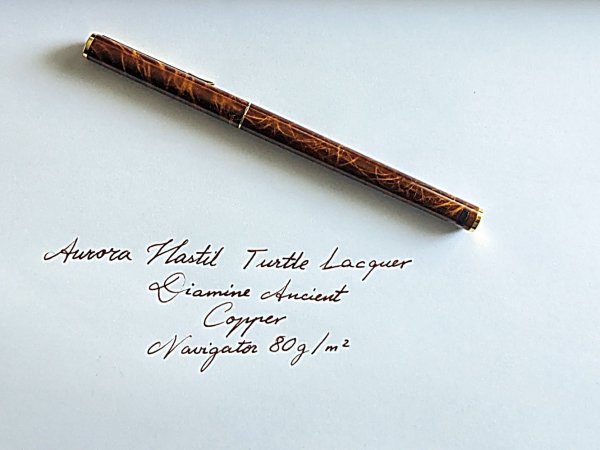 Aurora Hastil Turtle Lacquer
Diamine Ancient
Copper
Navigator 80g/m²